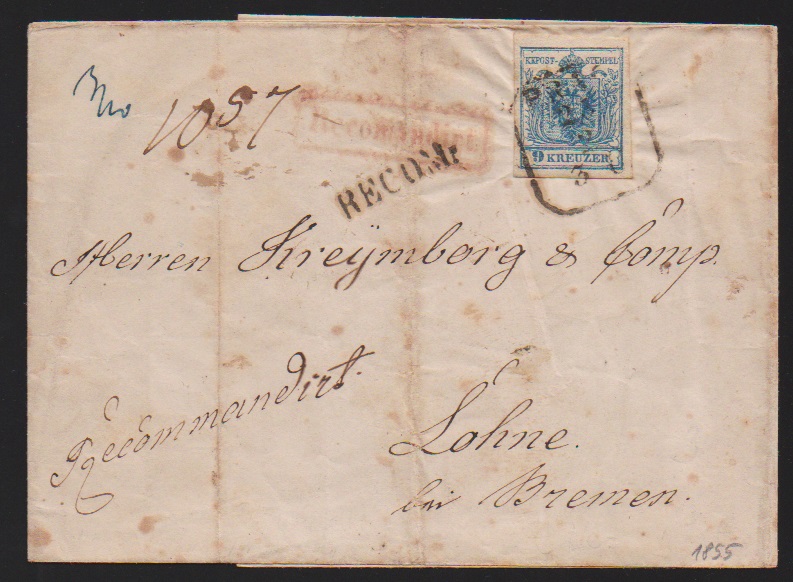 KKPOST-STEMPEL
9 KREUZER
1057
Recomandirt
RECOM:
Herren Kreÿmborg & Comp.
Recommandirt.
Lohne.
bei Bremen.
1855